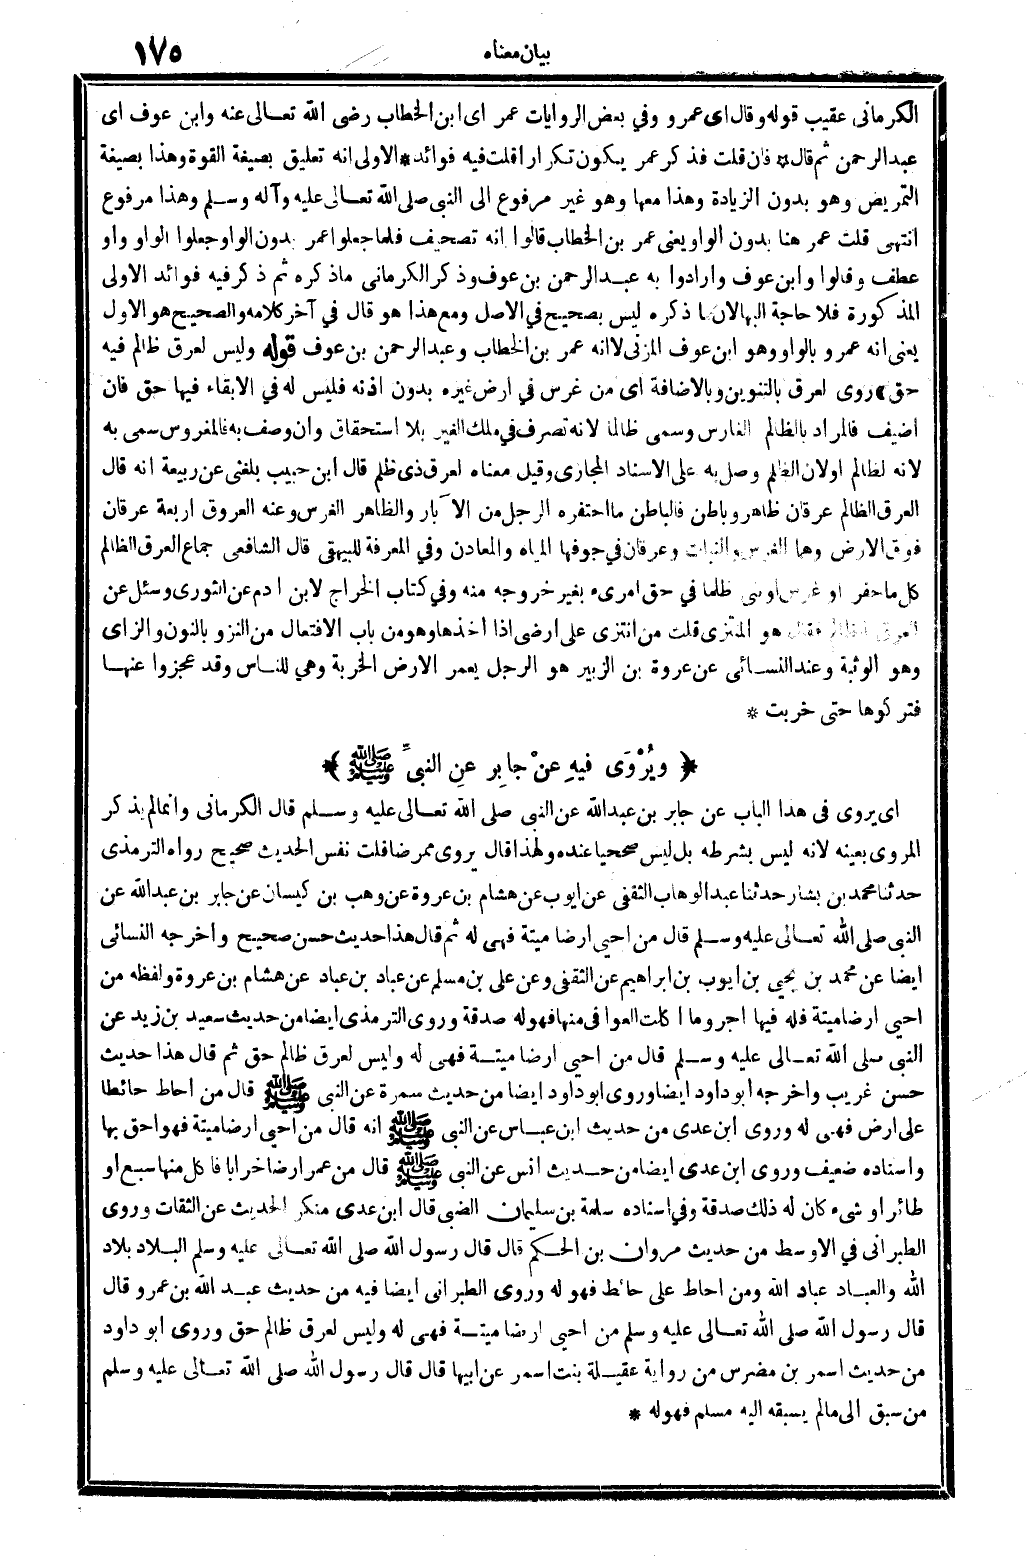 بيان معناه
١٧٥
الكرمانى عقيب قوله وقال اى عمرو وفي بعض الروايات عمر اى ابن الخطاب رضى الله تعالى عنه وابن عوف اى
عبد الرحمن ثم قال * فان قلت فذكر عمر يكون تكرارا قلت فيه فوائد * الاولى انه تعليق بصيغة القوة وهذا بصيغة
التمريض وهو بدون الزيادة وهذا معها وهو غير مرفوع الى النبى صلى الله تعالى عليه وآله وسلم وهذا مرفوع
انتهى قلت عمر هنا بدون الواو يعنى عمر بن الخطاب قالوا انه تصحيف فلما جعلوا عمر بدون الواو جعلوا الواو واو
عطف وقالوا وابن عوف وارادوا به عبد الرحمن بن عوف وذكر الكرمانى ماذكره ثم ذكر فيه فوائد الاولى
المذكورة فلا حاجة اليها لان ما ذكره ليس بصحيح في الاصل ومع هذا هو قال في آخر كلامه والصحيح هو الاول
يعنى انه عمرو بالواو وهو ابن عوف المزنى لا انه عمر بن الخطاب وعبد الرحمن بن عوف قوله وليس لعرق ظالم فيه
حق » روى لعرق بالتنوين وبالاضافة اى من غرس في ارض غيره بدون اذنه فليس له في الابقاء فيها حق فان
اضيف فالمراد بالظالم الغارس وسمى ظالما لانه تصرف في ملك الغير بلا استحقاق وان وصف به فالمغروس سمى به
لانه لظالم اولان الظلم وصل به على الاسناد المجازى وقيل معناه لعرق ذى ظلم قال ابن حبيب بلغنى عن ربيعة انه قال
العرق الظالم عرقان ظاهر وباطن فالباطن ما احتفره الرجل من الآبار والظاهر الغرس وعنه العروق اربعة عرقان
فوق الارض وهما الغرس والنبات وعرقان في جوفها المياه والمعادن وفي المعرفة للبيهقى قال الشافعى جماع العرق الظالم
كل ما حفر او غرس او بنى ظلما في حق امرىء بغير خروجه منه وفي كتاب الخراج لابن ادم عن الثورى وسئل عن
العرق الظالم فقال هو المنتزى قلت من انتزى على ارضى اذا اخذها وهو من باب الافتعال من النزو بالنون والزاى
وهو الوثبة وعند النسائى عن عروة بن الزبير هو الرجل يعمر الارض الخربة وهي للناس وقد عجزوا عنها
فتركوها حتى خربت *
﴿ وَيُرْوَى فيهِ عنْ جابِرٍ عنِ النبىِّ ﷺ ﴾
اى يروى فى هذا الباب عن جابر بن عبدالله عن النبى صلى الله تعالى عليه وسلم قال الكرمانى وانما لم يذكر
المروى بعينه لانه ليس بشرطه بل ليس صحيحا عنده ولهذا قال يروى ممرضا قلت نفس الحديث صحيح رواه الترمذى
حدثنا محمد بن بشار حدثنا عبد الوهاب الثقفى عن ايوب عن هشام بن عروة عن وهب بن كيسان عن جابر بن عبدالله عن
النبى صلى الله تعالى عليه وسلم قال من احيى ارضا ميتة فهى له ثم قال هذا حديث حسن صحيح واخرجه النسائى
ايضا عن محمد بن يحيى بن ايوب بن ابراهيم عن الثقفى وعن على بن مسلم عن عباد بن عباد عن هشام بن عروة ولفظه من
احيى ارضا ميتة فله فيها اجر وما اكلت العوافى منها فهو له صدقة وروى الترمذى ايضا من حديث سعيد بن زيد عن
النبى صلى الله تعالى عليه وسلم قال من احيى ارضا ميتة فهى له وليس لعرق ظالم حق ثم قال هذا حديث
حسن غريب واخرجه أبو داود ايضا وروى ابو داود ايضا من حديث سمرة عن النبى ﷺ قال من احاط حائطا
على ارض فهى له وروى ابن عدى من حديث ابن عباس عن النبى ﷺ انه قال من احيى ارضا ميتة فهو احق بها
واسناده ضعيف وروى ابن عدى ايضا من حديث انس عن النبى ﷺ قال من عمر ارضا خرابا فاكل منها سبع او
طائر او شىء كان له ذلك صدقة وفي اسناده سلمة بن سليمان الضبى قال ابن عدى منكر الحديث عن الثقات وروى
الطبرانى في الاوسط من حديث مروان بن الحكم قال قال رسول الله صلى الله تعالى عليه وسلم البلاد بلاد
الله والعباد عباد الله ومن احاط على حائط فهو له وروى الطبرانى ايضا فيه من حديث عبد الله بن عمرو قال
قال رسول الله صلى الله تعالى عليه وسلم من احيى ارضا ميتة فهى له وليس لعرق ظالم حق وروى ابو داود
من حديث اسمر بن مضرس من رواية عقيلة بنت اسمر عن ابيها قال قال رسول الله صلى الله تعالى عليه وسلم
من سبق الى مالم يسبقه اليه مسلم فهو له *